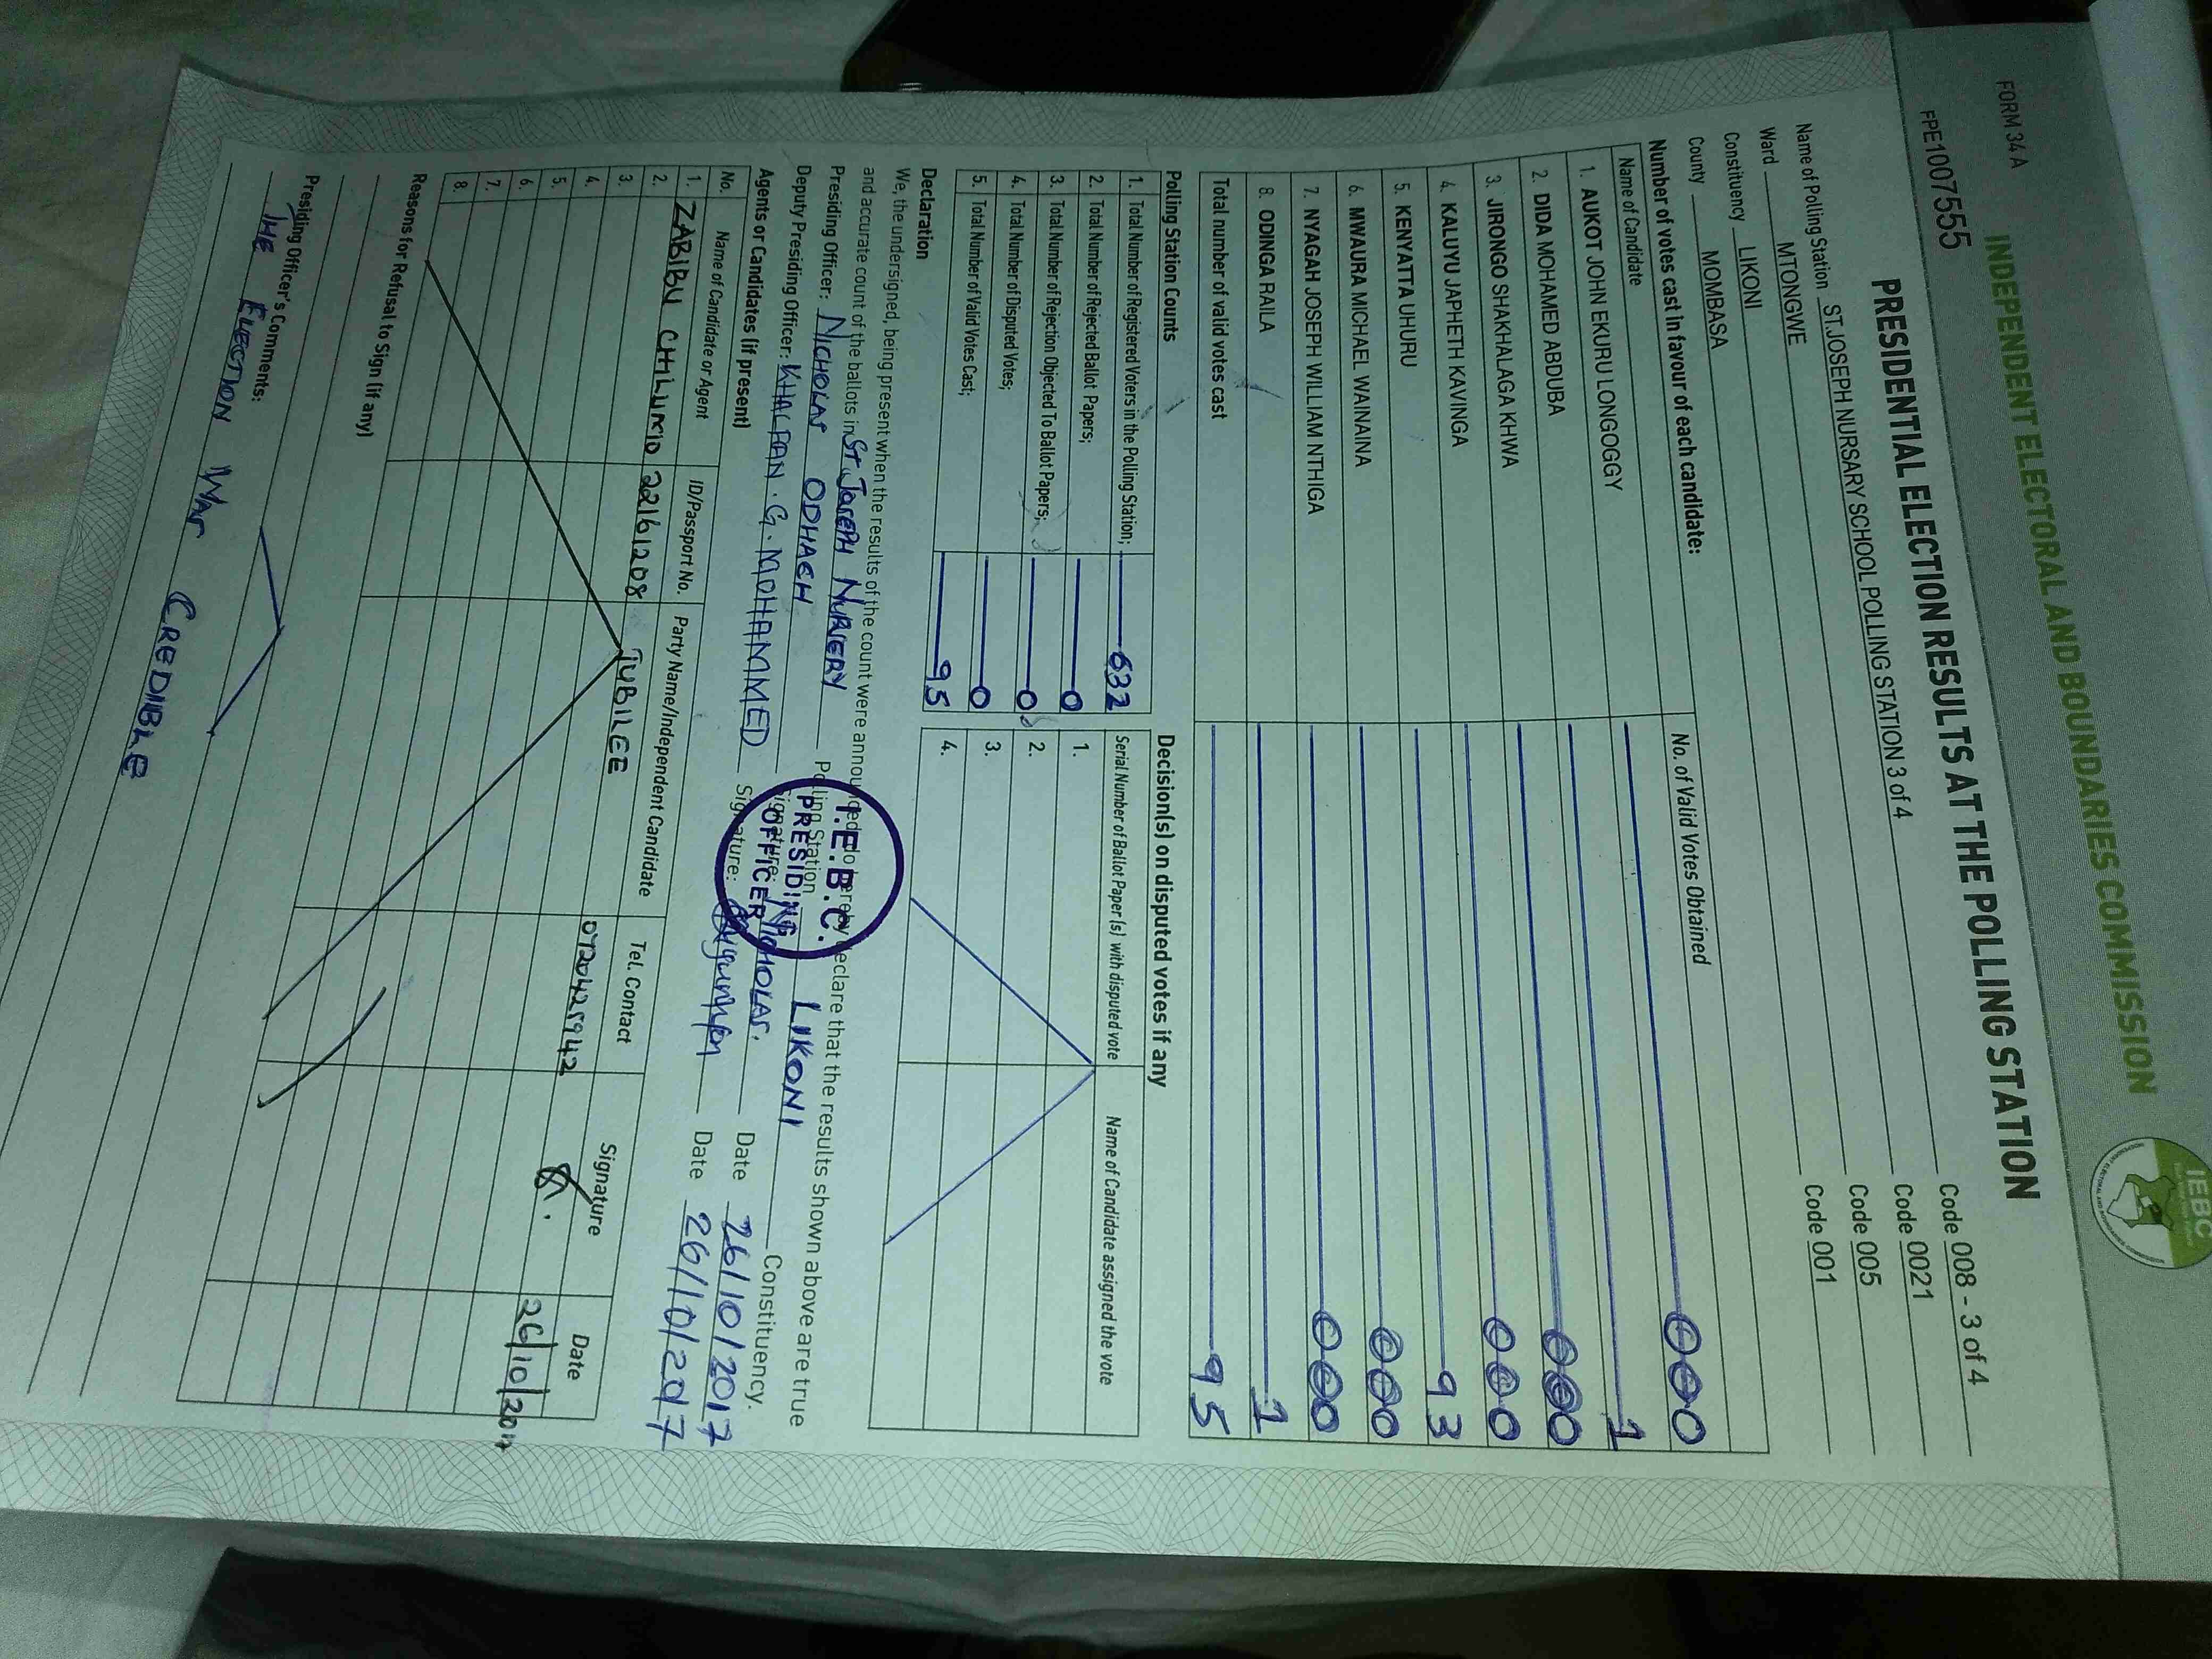 FORM 34 A
INDEPENDENT ELECTORAL AND BOUNDARIES COMMISSION
IEBC
FPE1007555
PRESIDENTIAL ELECTION RESULTS AT THE POLLING STATION
Name of Polling Station ST.JOSEPH NURSARY SCHOOL POLLING STATION 3 of 4 Code 008 - 3 of 4
Ward MTONGWE Code 0021
Constituency LIKONI Code 005
County MOMBASA Code 001
Number of votes cast in favour of each candidate:
Name of Candidate No. of Valid Votes Obtained
1. AUKOT JOHN EKURU LONGOGGY 000
2. DIDA MOHAMED ABDUBA 1
3. JIRONGO SHAKHALAGA KHWA 000
4. KALUYU JAPHETH KAVINGA 000
5. KENYATTA UHURU 93
6. MWAURA MICHAEL WAINAINA 000
7. NYAGAH JOSEPH WILLIAM NTHIGA 000
8. ODINGA RAILA 1
Total number of valid votes cast 95
Polling Station Counts
1. Total Number of Registered Voters in the Polling Station; 632
2. Total Number of Rejected Ballot Papers; 0
3. Total Number of Rejection Objected To Ballot Papers; 0
4. Total Number of Disputed Votes; 0
5. Total Number of Valid Votes Cast; 95
Decision(s) on disputed votes if any
Serial Number of Ballot Paper (s) with disputed vote Name of Candidate assigned the vote
1.
2.
3.
4.
Declaration
We, the undersigned, being present when the results of the count were announced, do hereby declare that the results shown above are true
and accurate count of the ballots in St. JOSEPH NURSERY Polling Station LIKONI Constituency.
Presiding Officer: NICHOLAS ODHACH Signature: NICHOLAS. Date 26/10/2017
Deputy Presiding Officer: KHALFAN . G . MOHAMMED Signature: Date 26/10/2017
I.E.B.C.
PRESIDING
OFFICER
Agents or Candidates (if present)
No. Name of Candidate or Agent ID/Passport No. Party Name/Independent Candidate Tel. Contact Signature Date
1. ZABIBU CHILUMO 22161208 JUBILEE 0720425942 26/10/2017
2.
3.
4.
5.
6.
7.
8.
Reasons for Refusal to Sign (if any)
Presiding Officer's Comments:
THE ELECTION WAS CREDIBLE